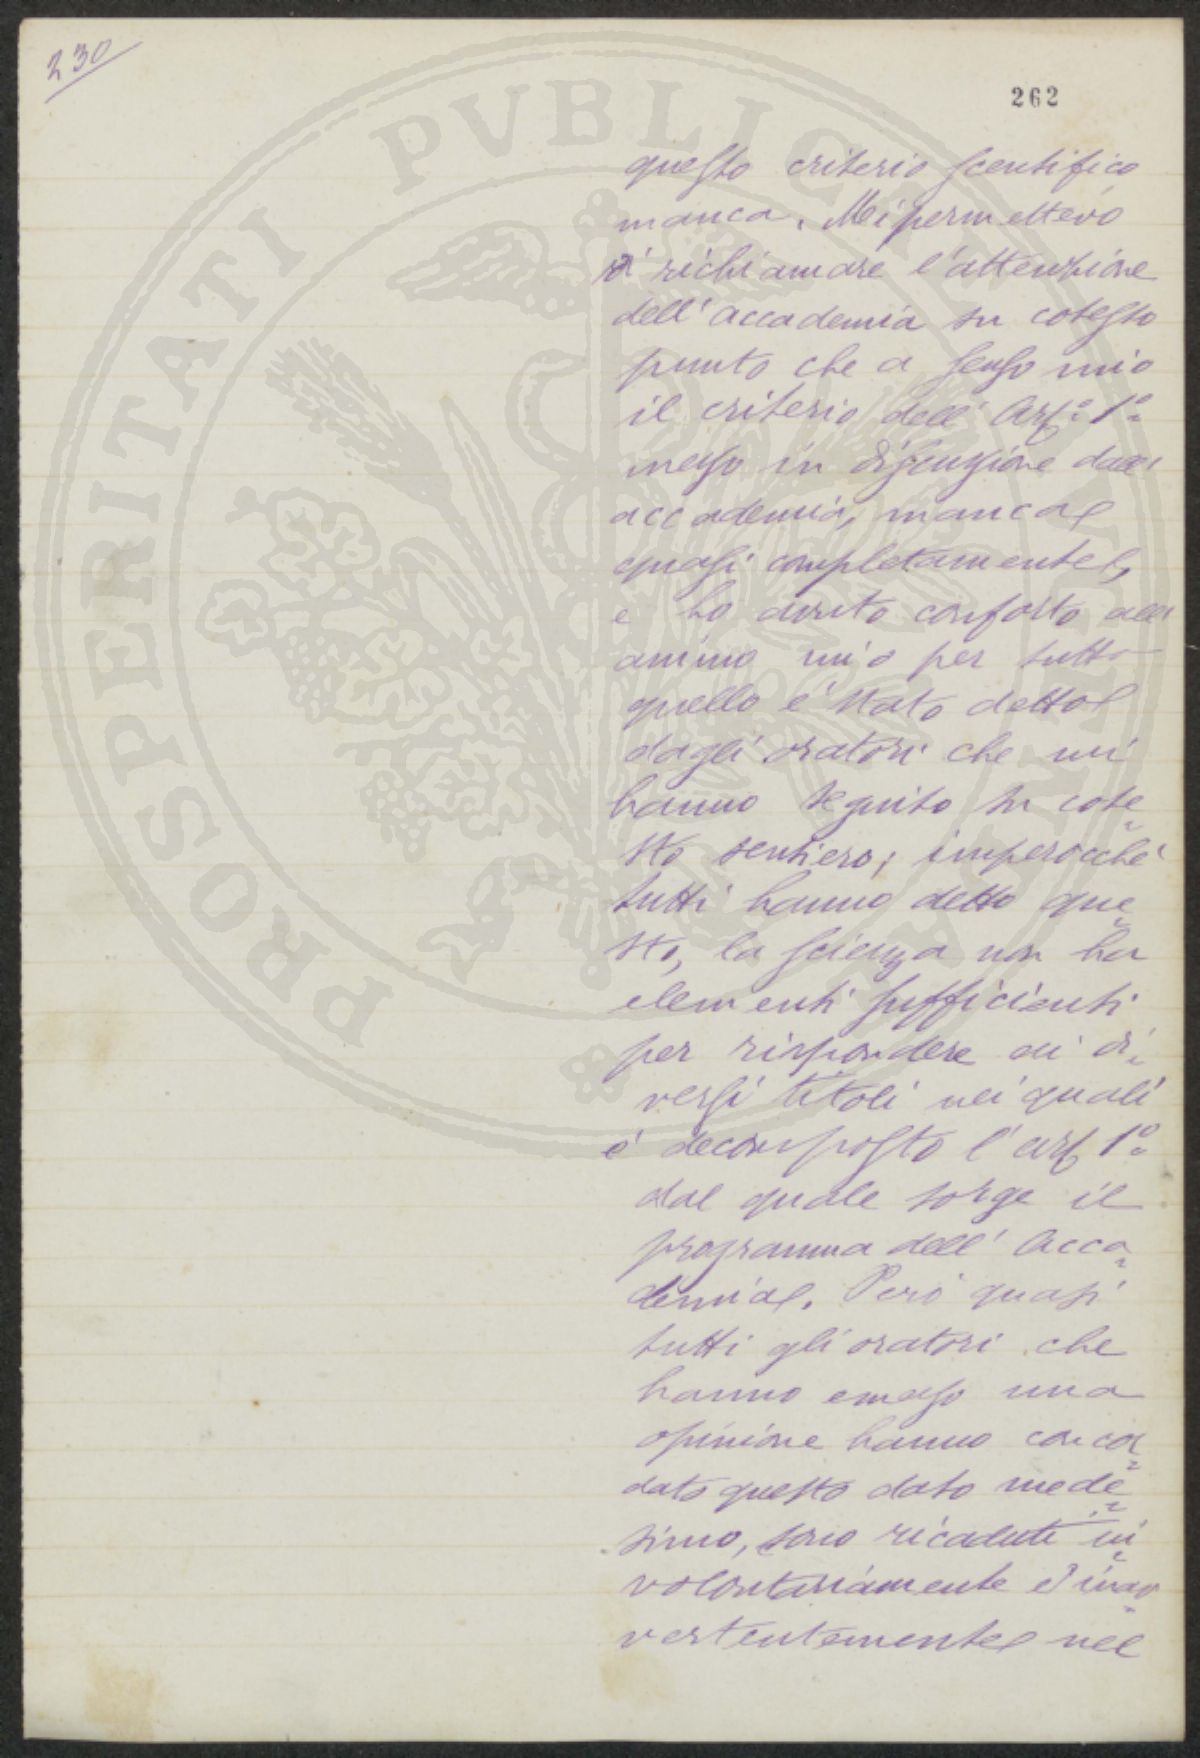 230
262
PROSPERITATI PVBLICAE
questo criterio scentifico
manca. Mi permettevo
di richiamare l'attenzione
dell'accademia su cotesto
punto che a senso mio
il criterio dell'Art.º 1º
messo in discussione dall'
accademia, manca
quasi completamente,
e ho avuto conforto all'
animo mio per tutto
quello è stato detto
dagli oratori che mi
hanno seguito su cote=
sto sentiero; imperocché
tutti hanno detto que=
sto, la scienza non ha
elementi sufficienti
per rispondere ai di=
versi titoli nei quali
è decomposto l'art 1º
dal quale sorge il
programma dell'Acca=
demia. Però quasi
tutti gli oratori che
hanno emesso una
opinione hanno concor=
dato questo dato mede=
simo, sono ricaduti in=
volontariamente ed inav=
vertentemente nel